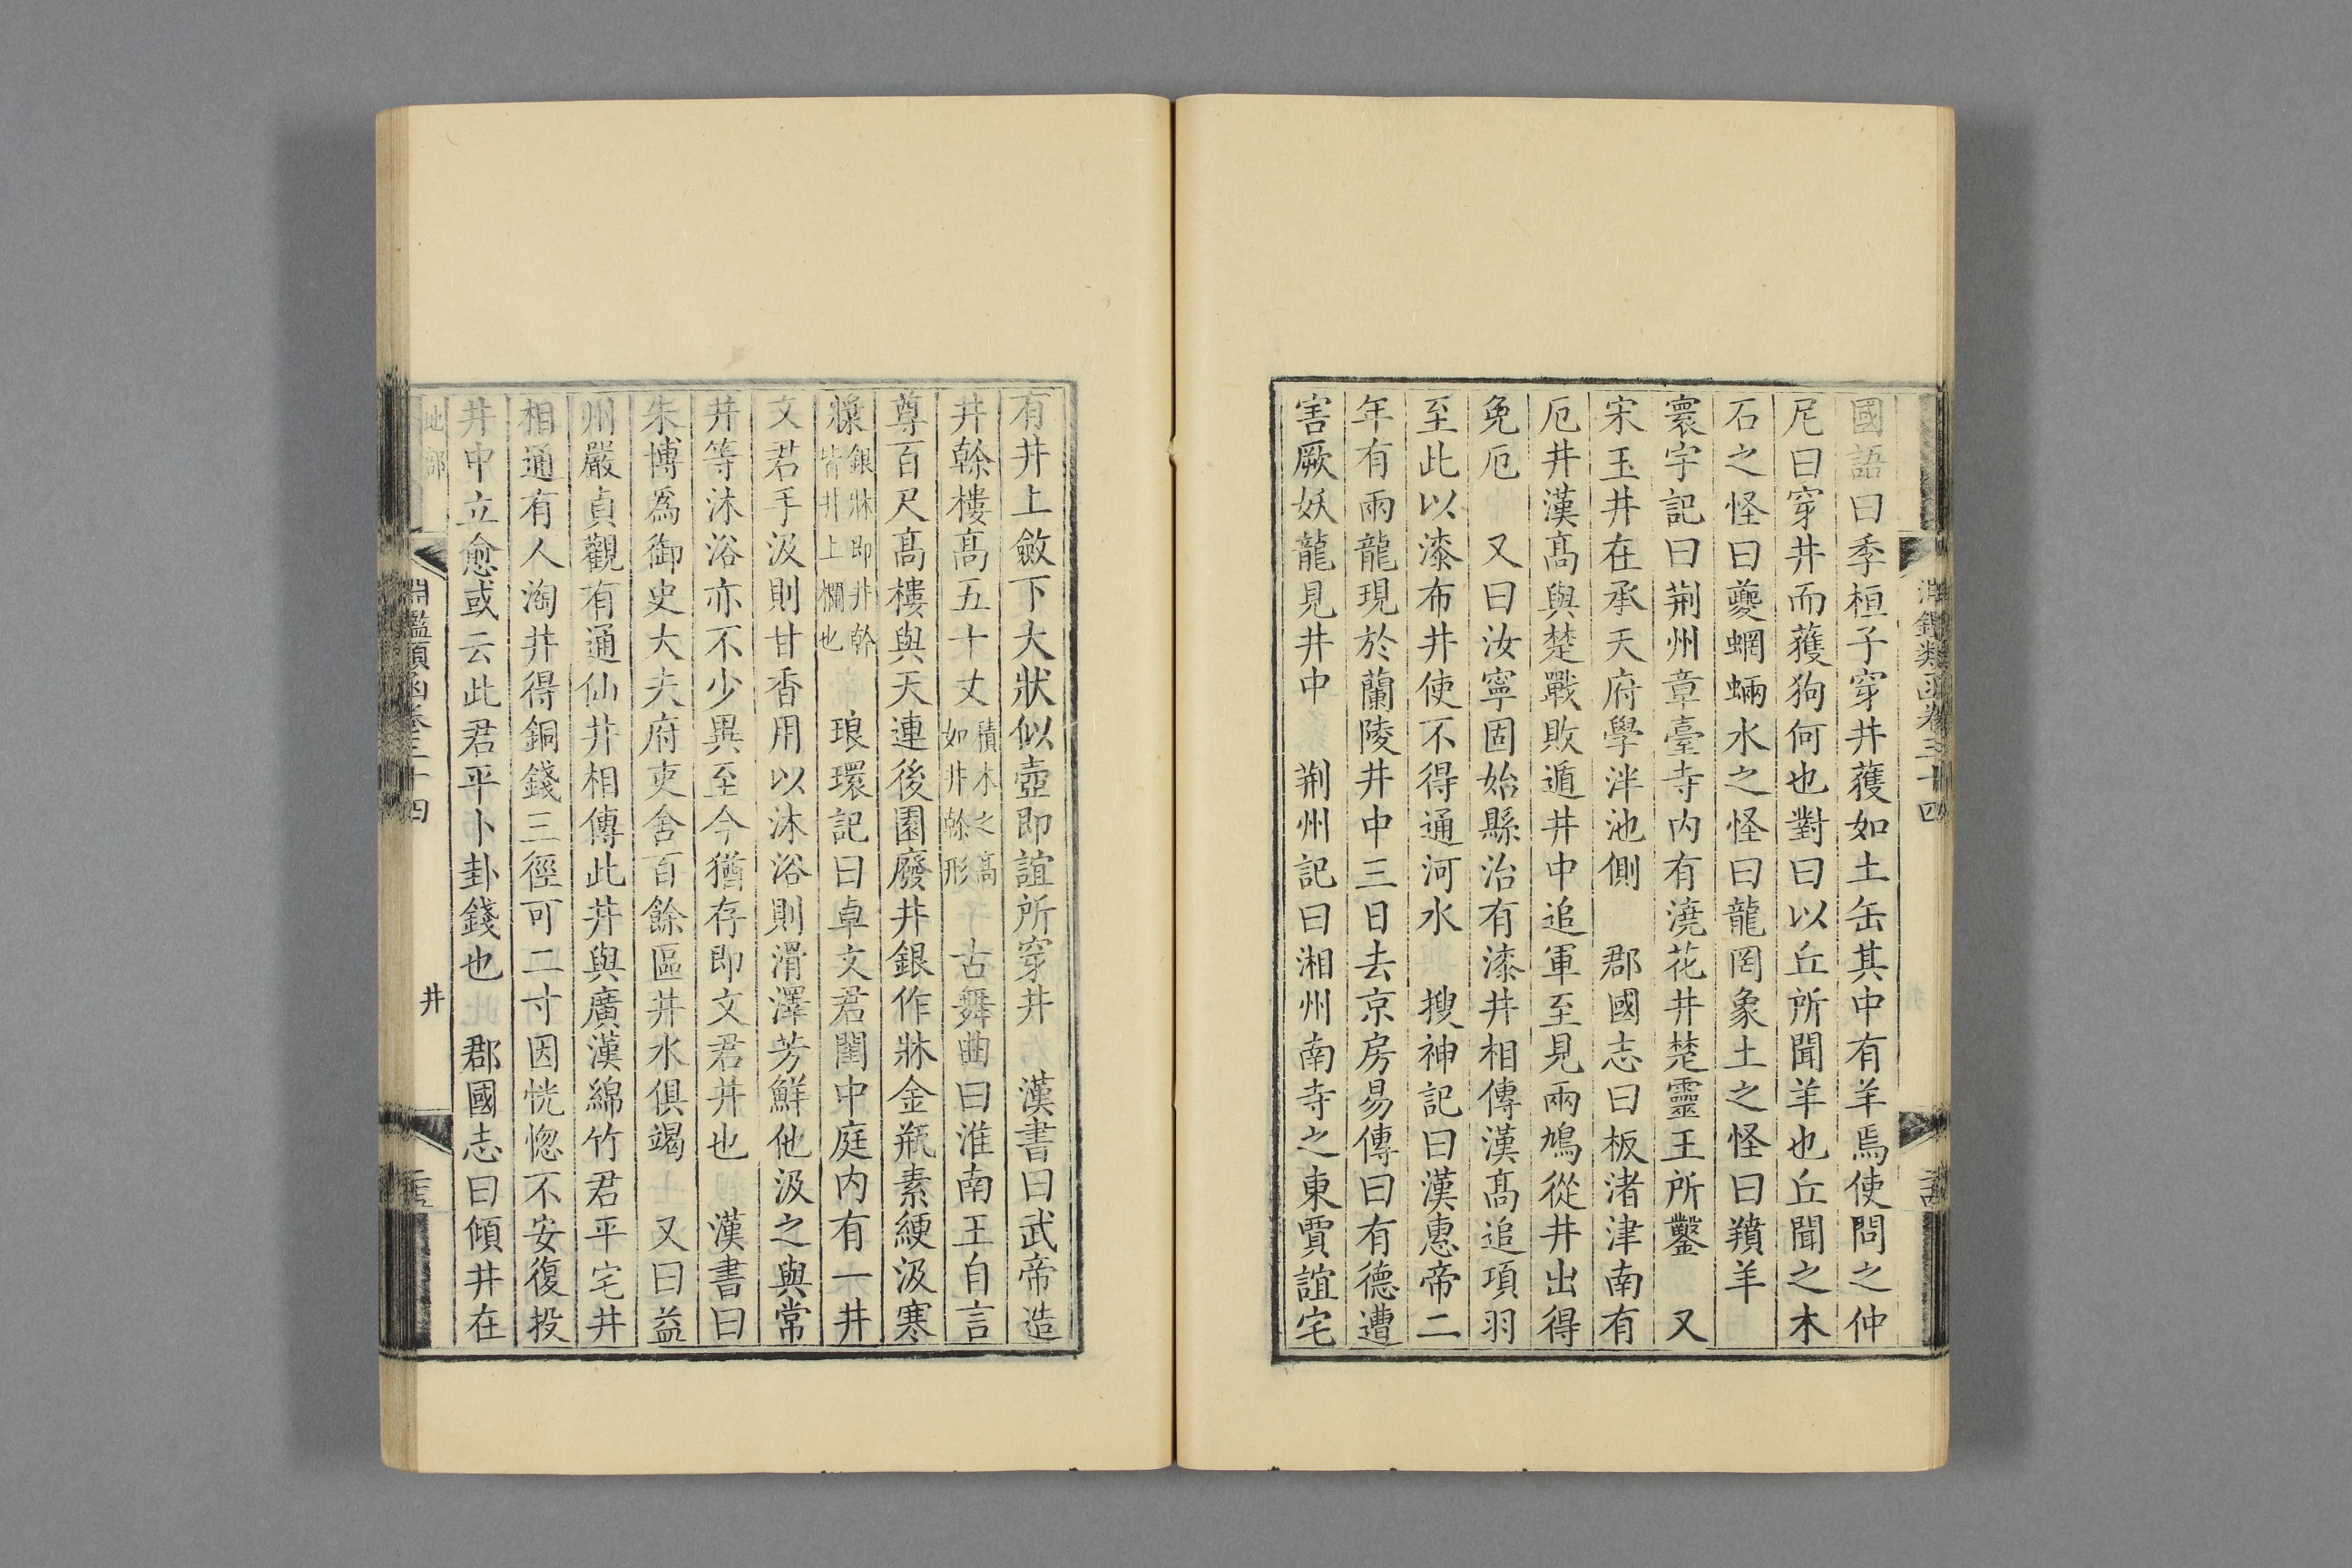 國語曰季桓子穿井獲如土缶其中有羊焉使問之仲
尼曰穿井而獲狗何也對曰以丘所聞羊也丘聞之木
石之怪曰夔蝄蜽水之怪曰龍罔象土之怪曰羵羊
寰宇記曰荆州章臺寺内有澆花井楚靈王所鑿 又
宋玉井在承天府學泮池側 郡國志曰板渚津南有
厄井漢髙與楚戰敗遁井中追軍至見兩鳩從井出得
免厄 又曰汝寧固始縣治有漆井相傳漢髙追項羽
至此以漆布井使不得通河水 搜神記曰漢惠帝二
年有兩龍現於蘭陵井中三日去京房易傳曰有德遭
害厥妖龍見井中 荆州記曰湘州南寺之東賈誼宅
淵鑑類函卷三十四
有井上斂下大狀似壺即誼所穿井 漢書曰武帝造
井榦樓髙五十丈積木之髙如井榦形 古舞曲曰淮南王自言
尊百尺髙樓與天連後園廢井銀作牀金瓶素綆汲寒
漿銀牀即井幹皆井上欄也 琅環記曰卓文君閨中庭内有一井
文君手汲則甘香用以沐浴則滑澤芳鮮他汲之與常
井等沐浴亦不少異至今猶存即文君井也 漢書曰
朱博爲御史大夫府吏舍百餘區井水俱竭 又曰益
州嚴貞觀有通仙井相傳此井與廣漢綿竹君平宅井
相通有人淘井得銅錢三徑可二寸因恍惚不安復投
井中立愈或云此君平卜卦錢也 郡國志曰傾井在
地部 井
淵鑑類函卷三十四